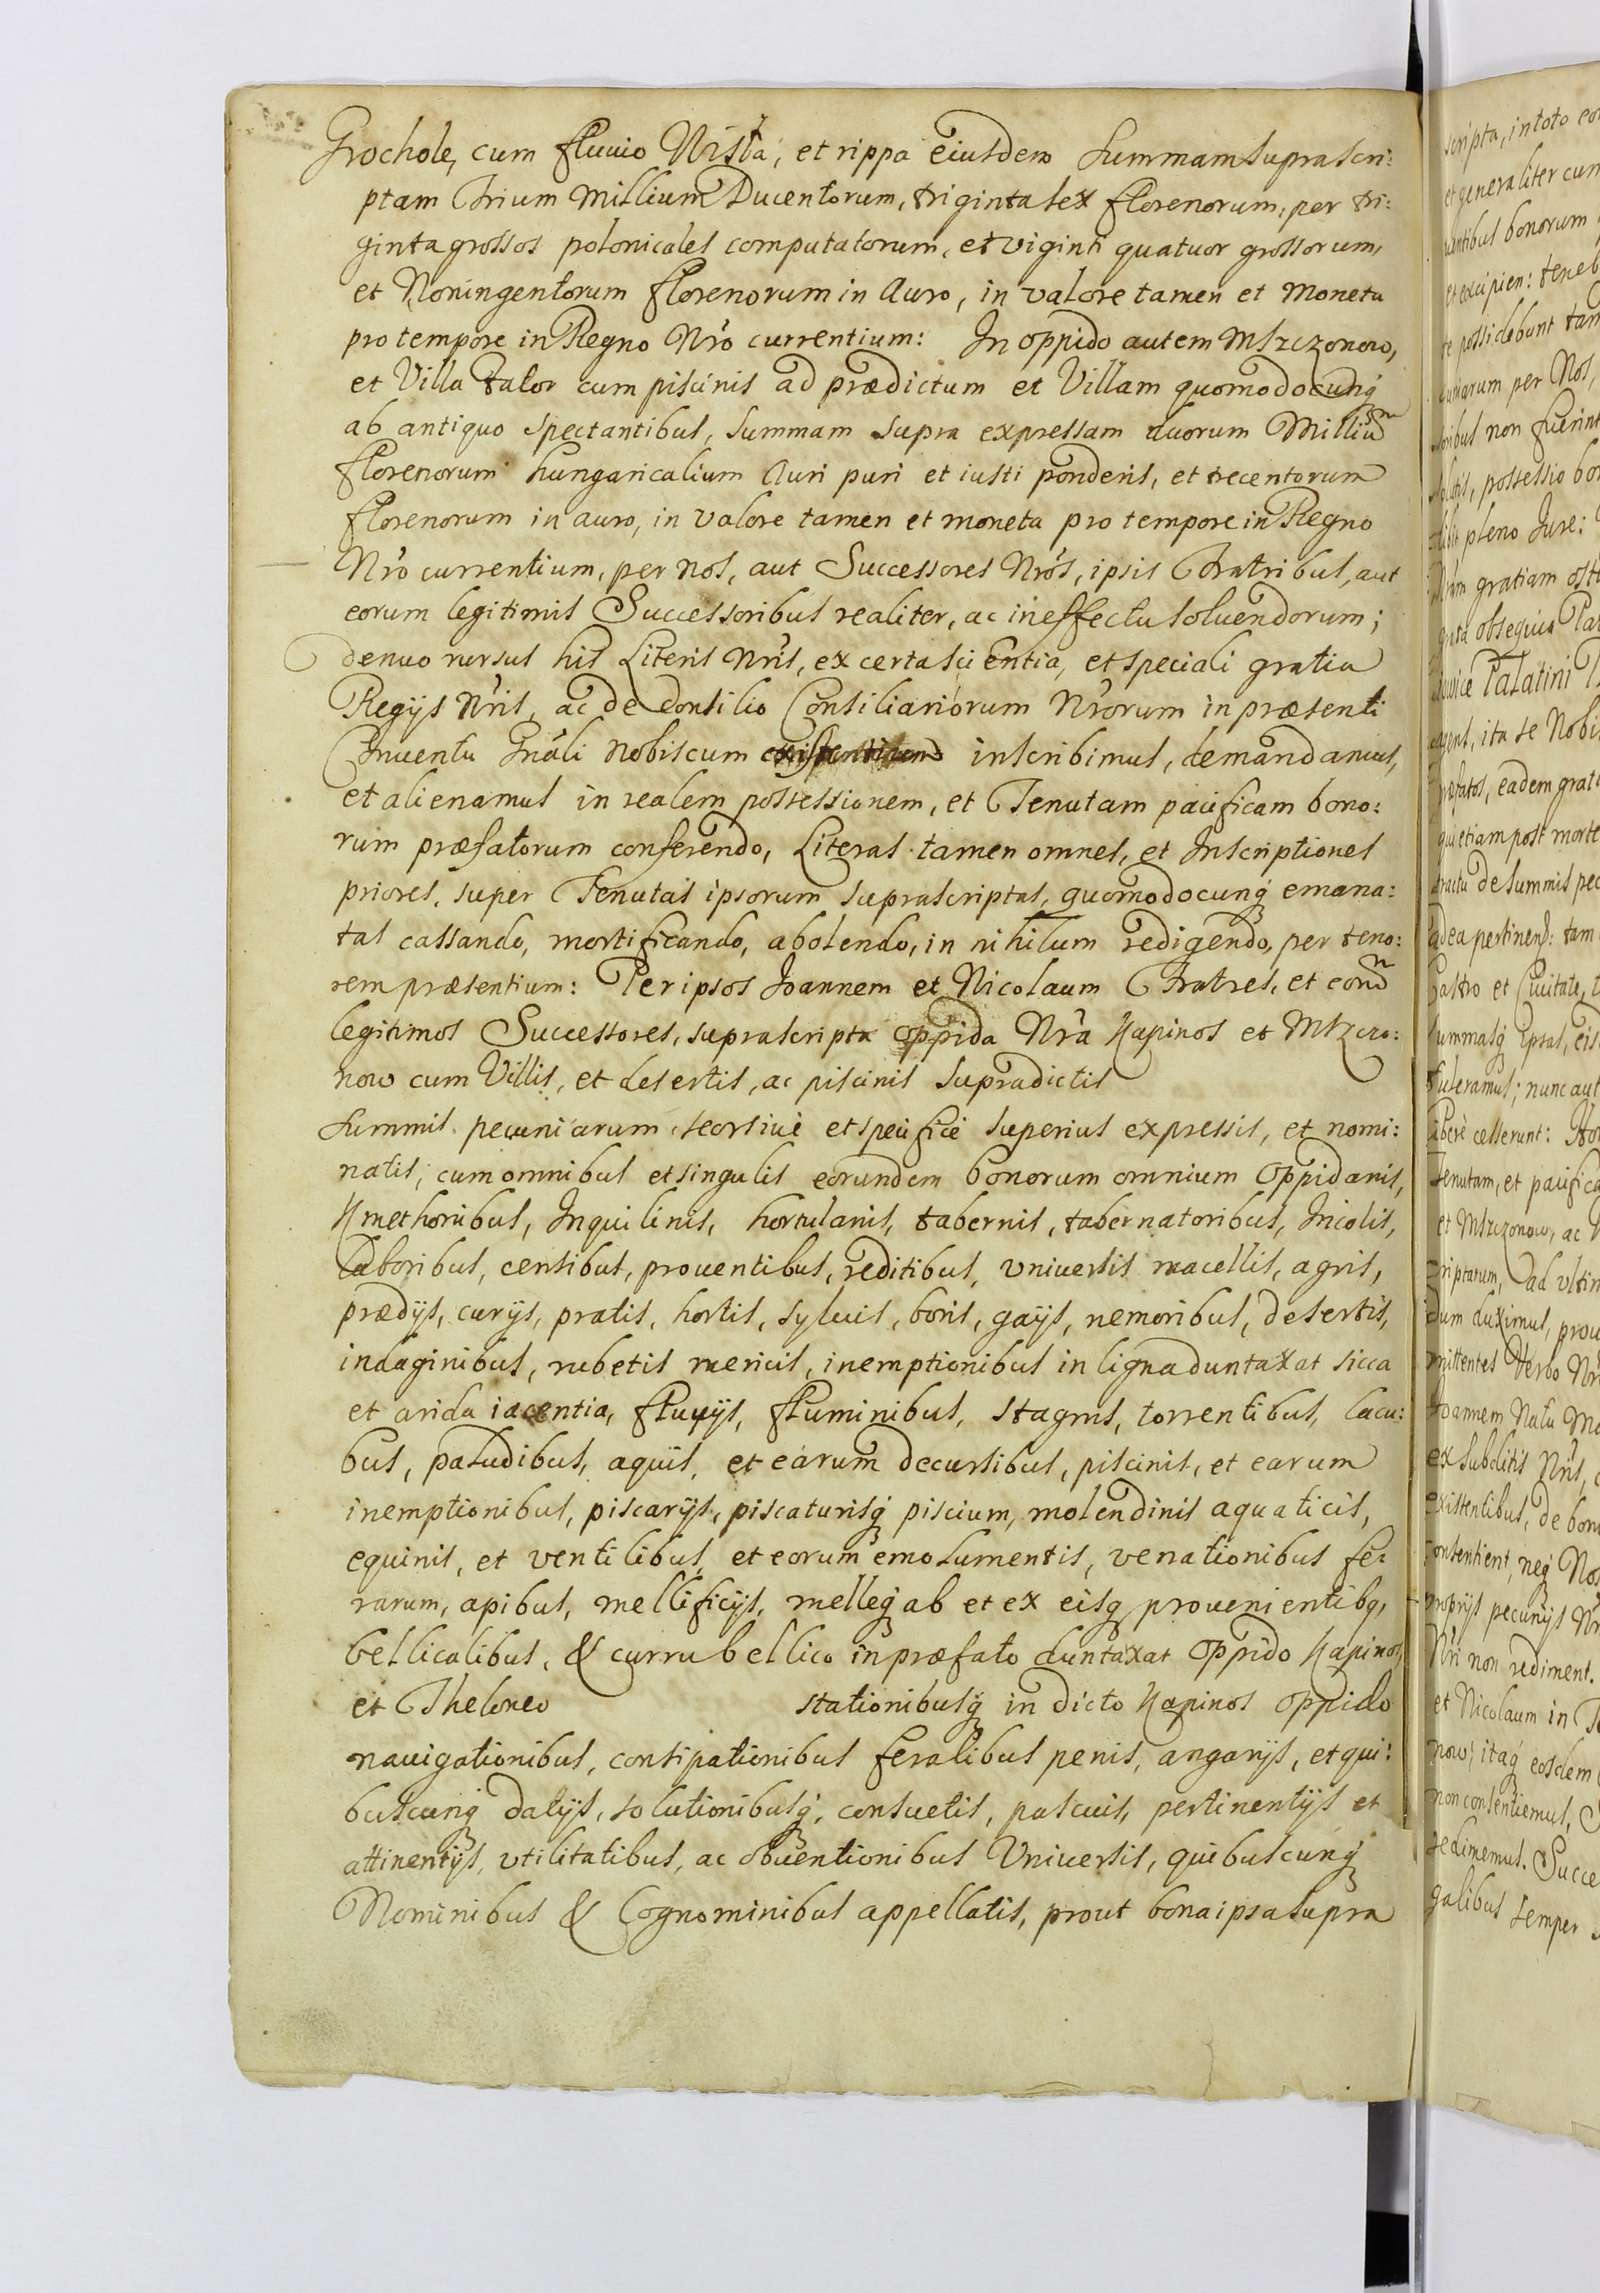 Grochole, cum fluuio Wisła, et rippa eiusdem Summam suprascri:
ptam Trium Millium Ducentorum, triginta sex florenorum, per tri:
ginta grossos polonicales computatorum, et viginti quatuor grossorum,
et Noningentorum florenorum in Auro, in valore tamen et Moneta
pro tempore in Regno Nr̃o currentium: In oppido autem Mszczonow,
et Villa Tator cum piscinis ad prædictum et Villam quomodocunq
ab antiquo spectantibus, Summam supra expressam duorum Milliũ
florenorum hungaricalium Auri puri et iusti ponderis, et trecentorum
florenorum in auro, in valore tamen et moneta pro tempore in Regno
Nr̃o currentium, per nos, aut Successores Nr̃os, ipsis Fratribus, aut
eorum legitimis Successoribus realiter, ac in effectu soluendorum;
denuo rursus his Literis Nr̃is, ex certa scientia, et speciali gratia
Regijs Nr̃is, ac de Consilio Consiliariorum Nr̃orum in præsenti
Conuentu Gn̄ali nobiscum inscribimus, demandamus,
et alienamus in realem possessionem, et Tenutam pacificam bono:
rum præfatorum conferendo, Literas tamen omnes, et Inscriptiones
priores, super Tenutas ipsorum suprascriptas, quomodocunq emana:
tas cassando, mortificando, abolendo, in nihilum redigendo, per teno:
rem præsentium: Per ipsos Joannem et Nicolaum Fratres, et eorũ
legitimos Successores, suprascripta oppida Nr̃a Kapinos et Mszczo:
now cum Villis, et desertis, ac piscinis supradictis
Summis pecuniarum seorsiue et specifice superius expressis, et nomi:
natis; cum omnibus et singulis eorundem bonorum omnium Oppidanis,
Kmethonibus, Inquilinis, hortulanis, tabernis, tabernatoribus, Incolis,
Laboribus, censibus, prouentibus, reditibus, vniuersis macellis, agris,
prædijs, curijs, pratis, hortis, syluis, boris, gajis, nemoribus, desertis,
indaginibus, rubetis mericis, inemptionibus in ligna duntaxat sicca
et arida iacentia, fluvijs, fluminibus, stagnis, torrentibus, lacu:
bus, paludibus, aquis, et earum decursibus, piscinis, et earum
inemptionibus, piscarijs, piscaturisq piscium, molendinis aquaticis,
equinis, et ventilibus, et eorum emolumentis, venationibus fe:
rarum, apibus, mellificijs, melleq ab et ex eisq prouenientibq,
bellicalibus, & curru bellico in præfato duntaxat Oppido Kapinos,
et Theloneo stationibusq in dicto Kapinos Oppido
nauigationibus, constipationibus feralibus penis, angarijs, et qui:
buscunq datijs, solutionibusq, consuetis, pascuis, pertinentijs et
attinentijs, vtilitatibus, ac obuentionibus Vniuersis, quibuscunq
Nominibus & Cognominibus appellatis, prout bona ipsa supra
scripta, in toto
et generaliter cum
bonorum
et excipien: teneb
te possidebunt tam
per Nos,
non fuerint
possessio bo
pleno Jure:
gratiam
obsequia
Palatini
agent, ita se Nobi
eadem grati
qui etiam post morte
de Summis pec
ad ea pertinend: tam
Castro et Ciuitate,
Summasq ipsas, eis
tuleramus; nunc aut
libere cesserunt:
Tenutam, et pacifica
et Mszczonow, ac
ad vltim
dum duximus, prou
mittentes Verbo Nr
Joannem Natu Ma
ex Subditis Nr̃is,
existentibus, de bon
consentient, neq Nos
proprijs pecunijs Nr
Nr̃i non rediment.
et Nicolaum in
now; itaq eosdem
non consentiemus,
redimemus. Succe
galibus semper